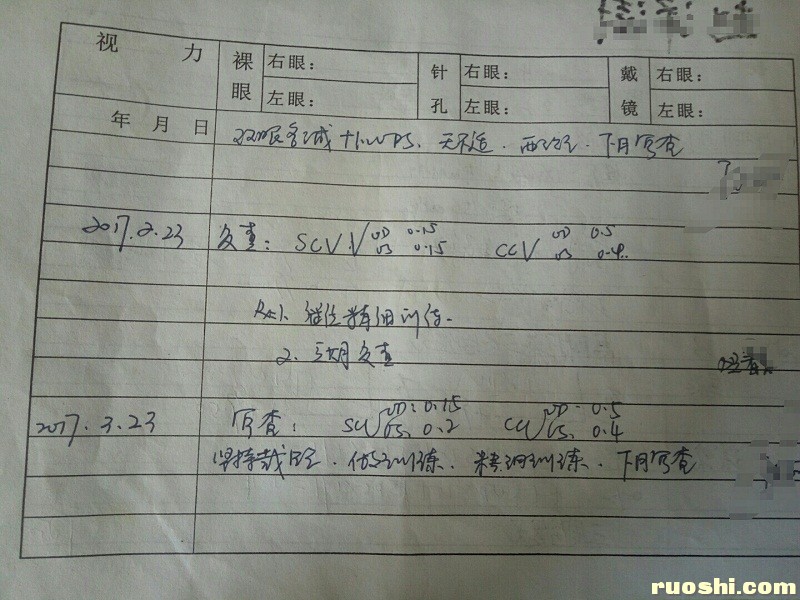 视 力 裸眼 右眼： 针孔 右眼： 戴镜 右眼：
左眼： 左眼： 左眼：
年 月 日 双眼各减 +1.00DS. 无不适. 下月复查
2017.2.23 复查： SCV OD 0.15 CCV OD 0.5
OS 0.15 OS 0.4
1. 继续精细训练.
2. 复查
2017.3.23 复查： OD: 0.15 OD: 0.5
OS. 0.2 OS. 0.4
坚持戴镜. 训练. 精细训练. 下月复查
ruoshi.com